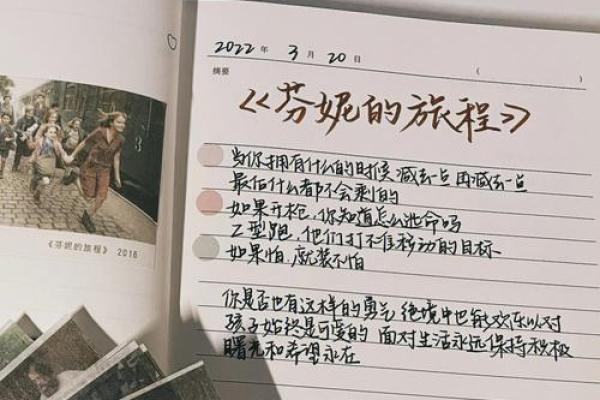 2022年 3月 20日 ( )
摘要
《芬妮的旅程》
当你拥有什么的时候 减去一点 再减去一点
最后什么都不会剩的
如果开枪,你知道怎么逃命吗
Z型跑,他们打不准移动的目标
如果怕,就装不怕
你是否也有这样的勇气 绝境中也能欢乐以对
孩子始终是可爱的 面对生活永远保持积极
曙光和希望永在
《芬妮的旅程》 2016